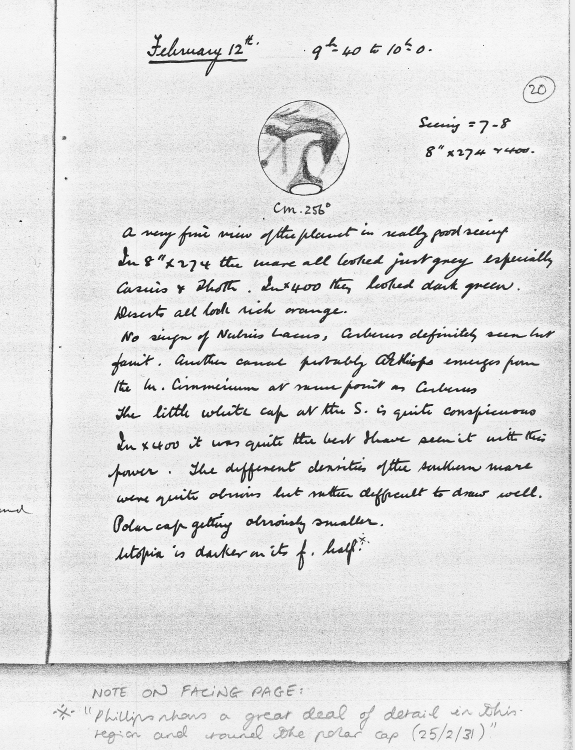 February 12th. 9h 40 to 10h 0.
20
Seeing = 7-8
8" x 274 & 400.
Cm. 256°
A very fine view of the planet in really good seeing
In 8" x 274 the mare all looked just grey especially
Casius & Thoth. In x 400 they looked dark green.
Deserts all look rich orange.
No sign of Nubis Lacus, Cerberus definitely seen but
faint. Another canal probably Æthiops emerges from
the M. Cimmerium at same point as Cerberus
The little white cap at the S. is quite conspicuous
In x 400 it was quite the best I have seen it with this
power. The different densities of the southern mare
were quite obvious but rather difficult to draw well.
Polar cap getting obviously smaller.
Utopia is darker on its f. half.*
and
NOTE ON FACING PAGE:
* "Phillips shows a great deal of detail in this
region and round the polar cap (25/2/31)"